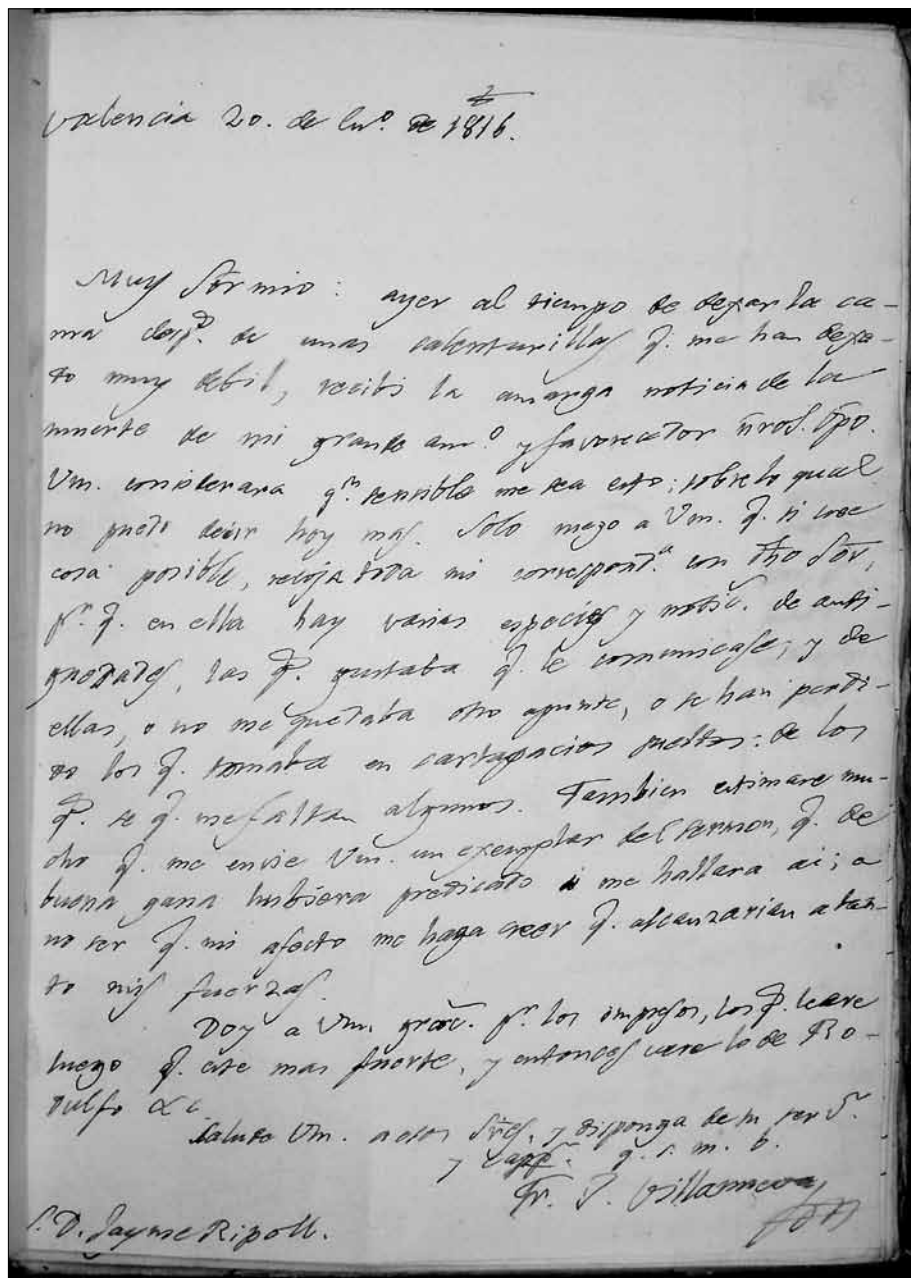 Valencia 20. de En.º de 1816.
Muy Sõr mio: ayer al tiempo de dexar la ca-
ma desp.s de unas calenturillas q. me han dexa-
do muy debil, recibi la amarga noticia de la
muerte de mi grande am.º y favorecedor ñro S. Õpo.
Vm. considerara q.n sensible me sea esto; sobre lo qual
no puedo decir hoy mas. Solo ruego a Vm. q. si cree
cosa posible, recoja toda mi correspond.a con dho Sõr,
p.r q. en ella hay varias especies y notic. de anti-
guedades, las q. gustaba q. le comunicase; y de
ellas, o no me quedaba otro apunte, o se han perdi-
do los q. tomaba en cartapacios sueltos: de los
q. se q. me faltan algunos. Tambien estimare mu-
cho q. me envie Vm. un exemplar del sermon, q. de
buena gana hubiera predicado si me hallara ai; a
no ser q. mi afecto me haga creer q. alcanzarian a tan-
to mis fuerzas.
Doy a Vm. grac. p.r los impresos, los q. leere
luego q. este mas fuerte, y entonces vere lo de Ro-
dulfo &c
Salude Vm. a esos Sres. y disponga de su ser.r
y capp.n q. s. m. b.
Fr. J. Villanueva
S. D. Jayme Ripoll.